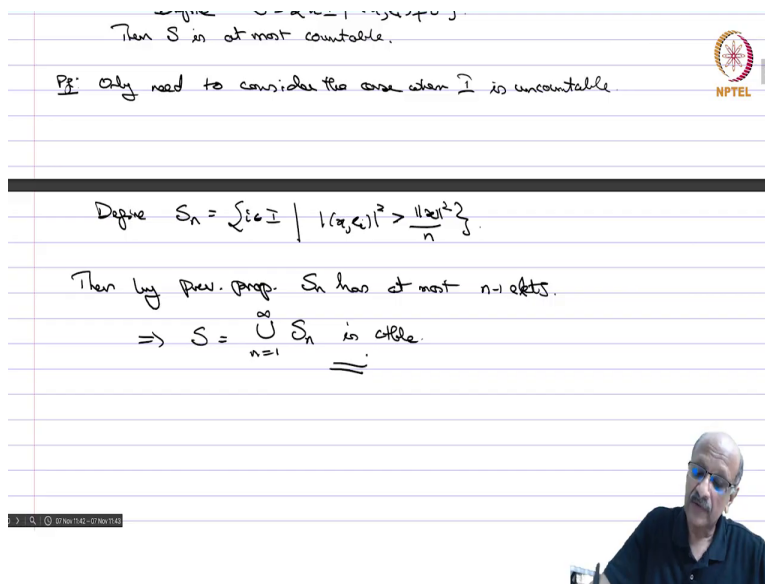 Define S = {i ∈ I | (x, e_i) ≠ 0}.
Then S is at most countable.
Pf: Only need to consider the case when I is uncountable.
NPTEL
Define S_n = {i ∈ I | |(x, e_i)|² > ||x||²/n}.
Then by prev. prop. S_n has at most n-1 elts.
⇒ S = ∞∪n=1 S_n is ctble.
07 Nov 11:42 – 07 Nov 11:43